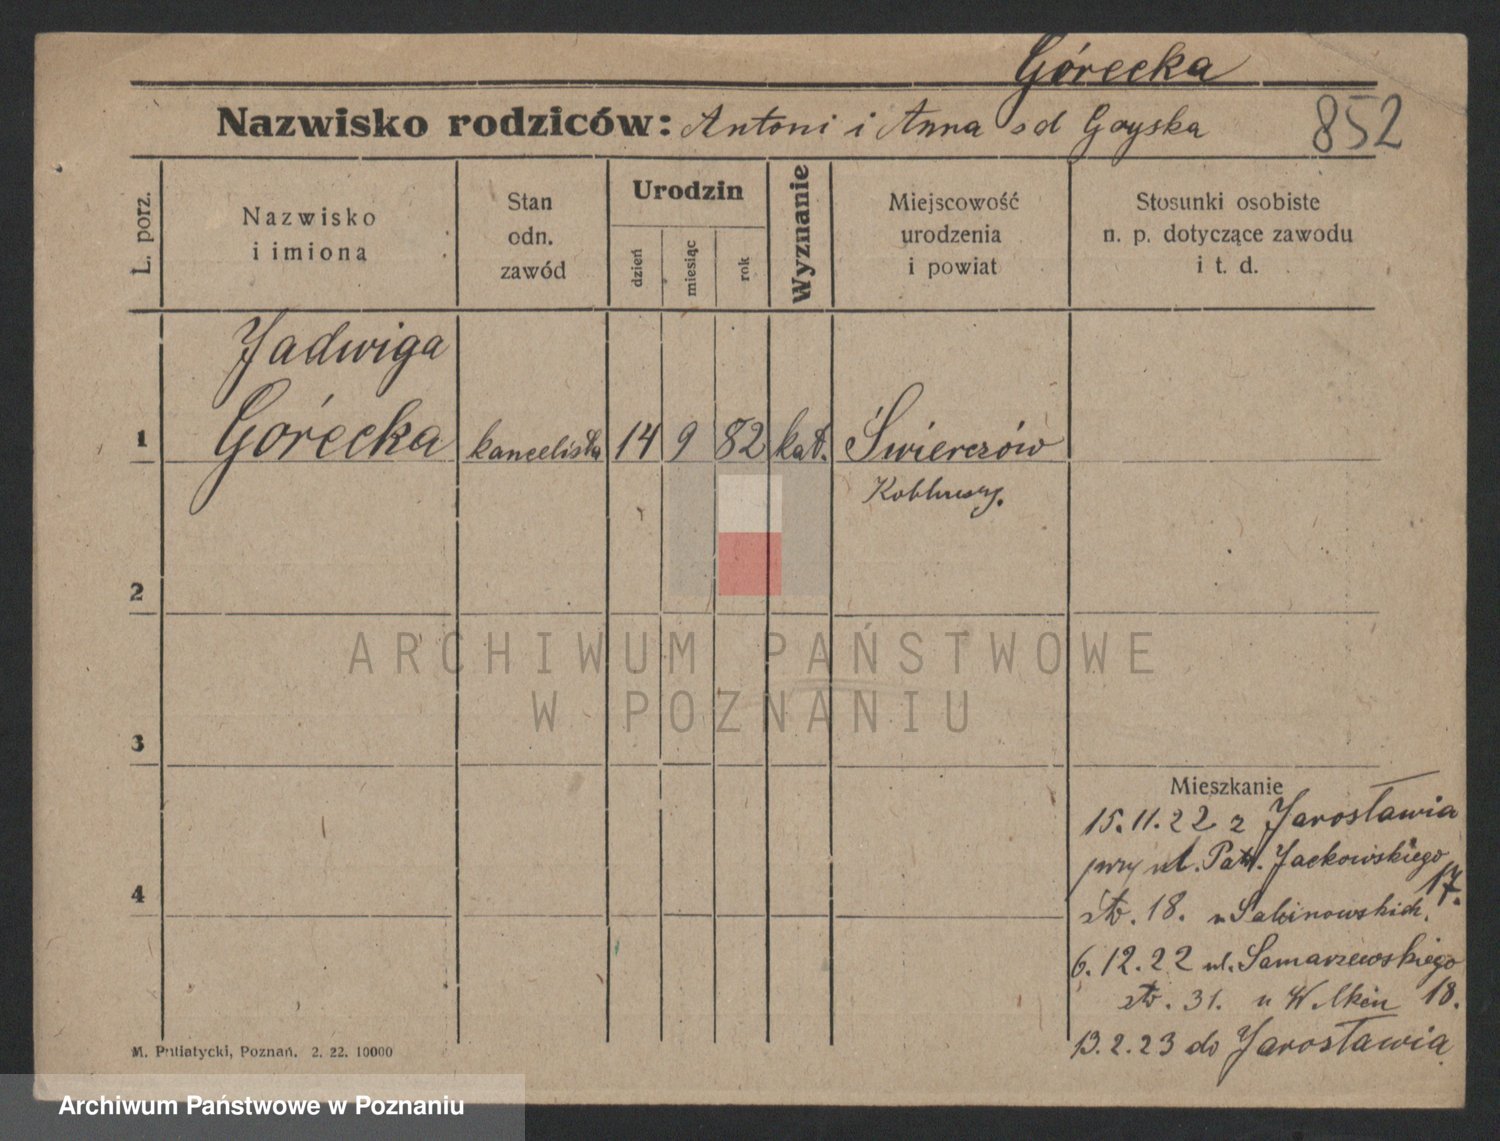 Górecka
Nazwisko rodziców: Antoni i Anna od
852
L. porz.
Nazwisko
i imiona
Stan
odn.
zawód
Urodzin
dzień
miesiąc
rok
Wyznanie
Miejscowość
urodzenia
i powiat
Stosunki osobiste
n. p. dotyczące zawodu
i t. d.
Jadwiga
1 Górecka kancelistka 14 9 82 kat. Świerczów
2
ARCHIWUM PAŃSTWOWE
W POZNANIU
3
Mieszkanie
15.11.22 z Jarosławia
przy ul. Patr. Jackowskiego
17.
str. 18. u Sabinowskich.
4
6.12.22 ul. Samarzewskiego
str. 31. u 18.
13.2.23 do Jarosławia
M. Putiatycki, Poznań. 2. 22. 10000
Archiwum Państwowe w Poznaniu